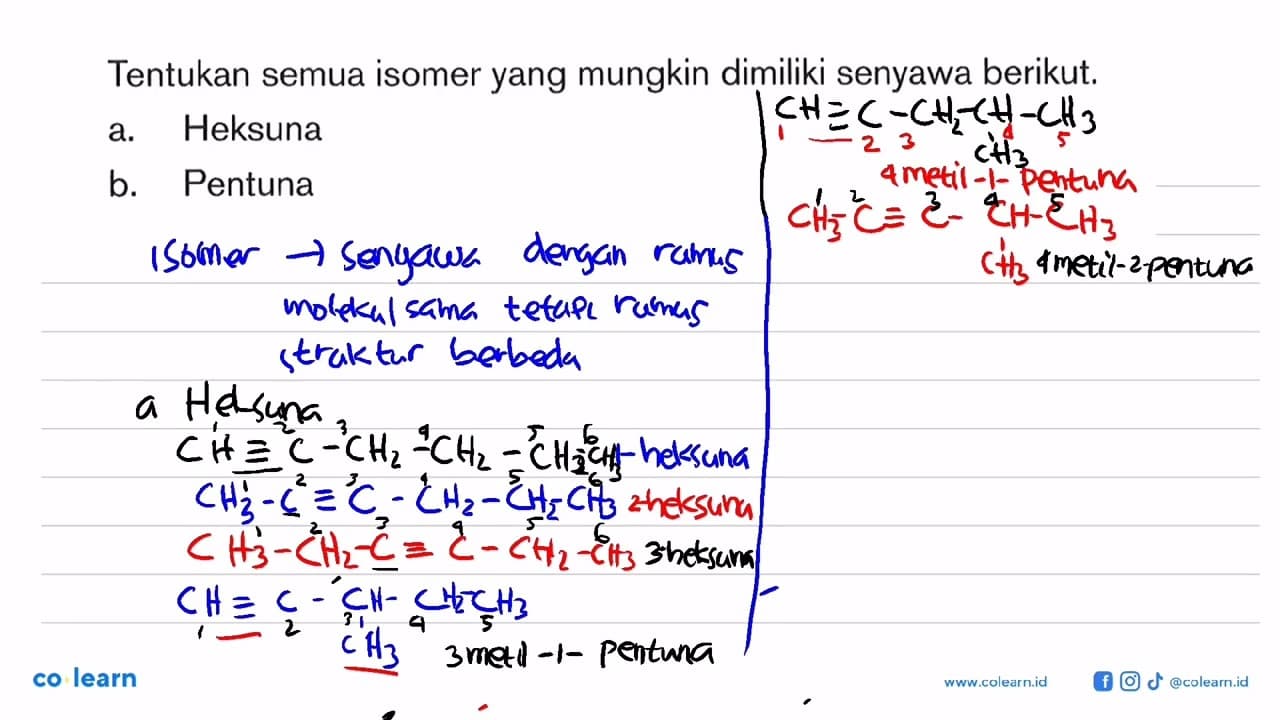 Tentukan semua isomer yang mungkin dimiliki senyawa berikut.
a. Heksuna
b. Pentuna
isomer → senyawa dengan rumus
molekul sama tetapi rumus
struktur berbeda
a Heksuna
1 2 3 4 5 6
CH≡C-CH2-CH2-CH2-CH3 1-heksuna
1 2 3 4 5 6
CH3-C≡C-CH2-CH2-CH3 2-heksuna
1 2 3 4 5 6
CH3-CH2-C≡C-CH2-CH3 3-heksuna
CH≡C-CH-CH2-CH3
1 2 3 4 5
CH3 3 metil-1-pentuna
CH≡C-CH2-CH-CH3
1 2 3 4 5
CH3
4 metil-1-pentuna
1 2 3 4 5
CH3-C≡C-CH-CH3
CH3 4 metil-2-pentuna
co learn
www.colearn.id
@colearn.id